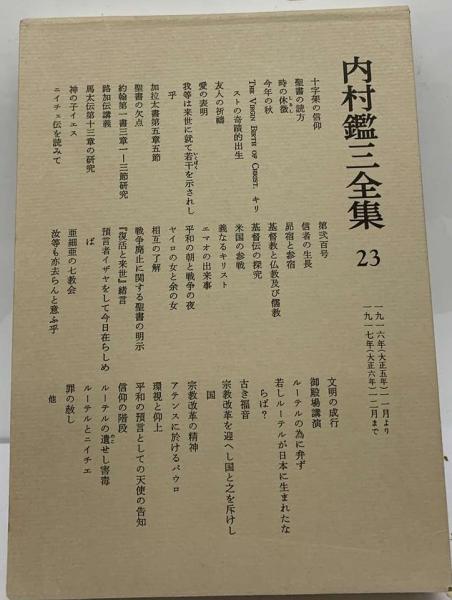 内村鑑三全集 23
一九一六年(大正五年)一一月より
一九一七年(大正六年)一二月まで
十字架の信仰
聖書の読方
時の休徴
しるし
今年の秋
THE VIRGIN BIRTH OF CHRIST. キリ
ストの奇蹟的出生
友人の祈禱
愛の表明
我等は来世に就て若干を示されし
いくばく
乎
加拉太書第五章五節
聖書の欠点
約翰第一書三章一―三節研究
路加伝講義
馬太伝第十三章の研究
神の子イエス
ニイチェ伝を読みて
第弐百号
信者の生長
昴宿と参宿
基督教と仏教及び儒教
基督伝の探究
米国の参戦
義なるキリスト
エマオの出来事
平和の朝と戦争の夜
ヤイロの女と余の女
相互の了解
戦争廃止に関する聖書の明示
『復活と来世』緒言
預言者イザヤをして今日在らしめ
ば
亜細亜の七教会
汝等も亦去らんと意ふ乎
文明の成行
御殿場講演
ルーテルの為に弁ず
若しルーテルが日本に生まれたな
らば?
古き福音
宗教改革を迎へし国と之を斥けし
国
宗教改革の精神
アテンスに於けるパウロ
環視と仰上
平和の預言としての天使の告知
信仰の階段
ルーテルの遺せし害毒
のこ
ルーテルとニイチエ
罪の赦し
他